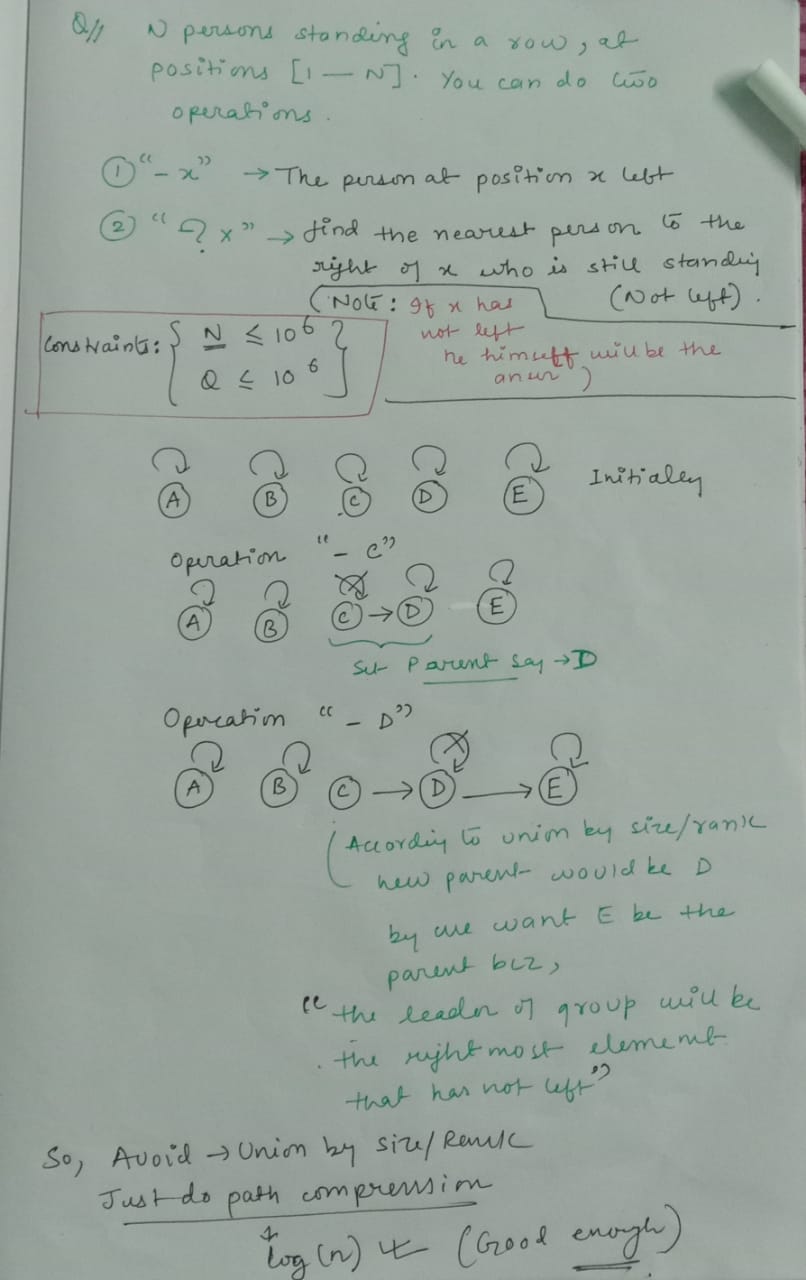 Q// N persons standing in a row, at
positions [1 — N]. You can do two
operations.
① "- x" → The person at position x left
② "? x" → find the nearest person to the
right of x who is still standing
(Not left).
(Note: If x has
not left
he himself will be the
answer)
Constraints: { N ≤ 10^6 }
{ Q ≤ 10^6 }
A B C D E Initialey
Operation "- C"
A B C → D E
Set Parent say → D
Operation "- D"
A B C → D → E
(According to union by size/rank
new parent would be D
by we want E be the
parent bcz,
"the leader of group will be
the rightmost element
that has not left"
So, Avoid → Union by size/Rank
Just do path compression
log(n) (Good enough)